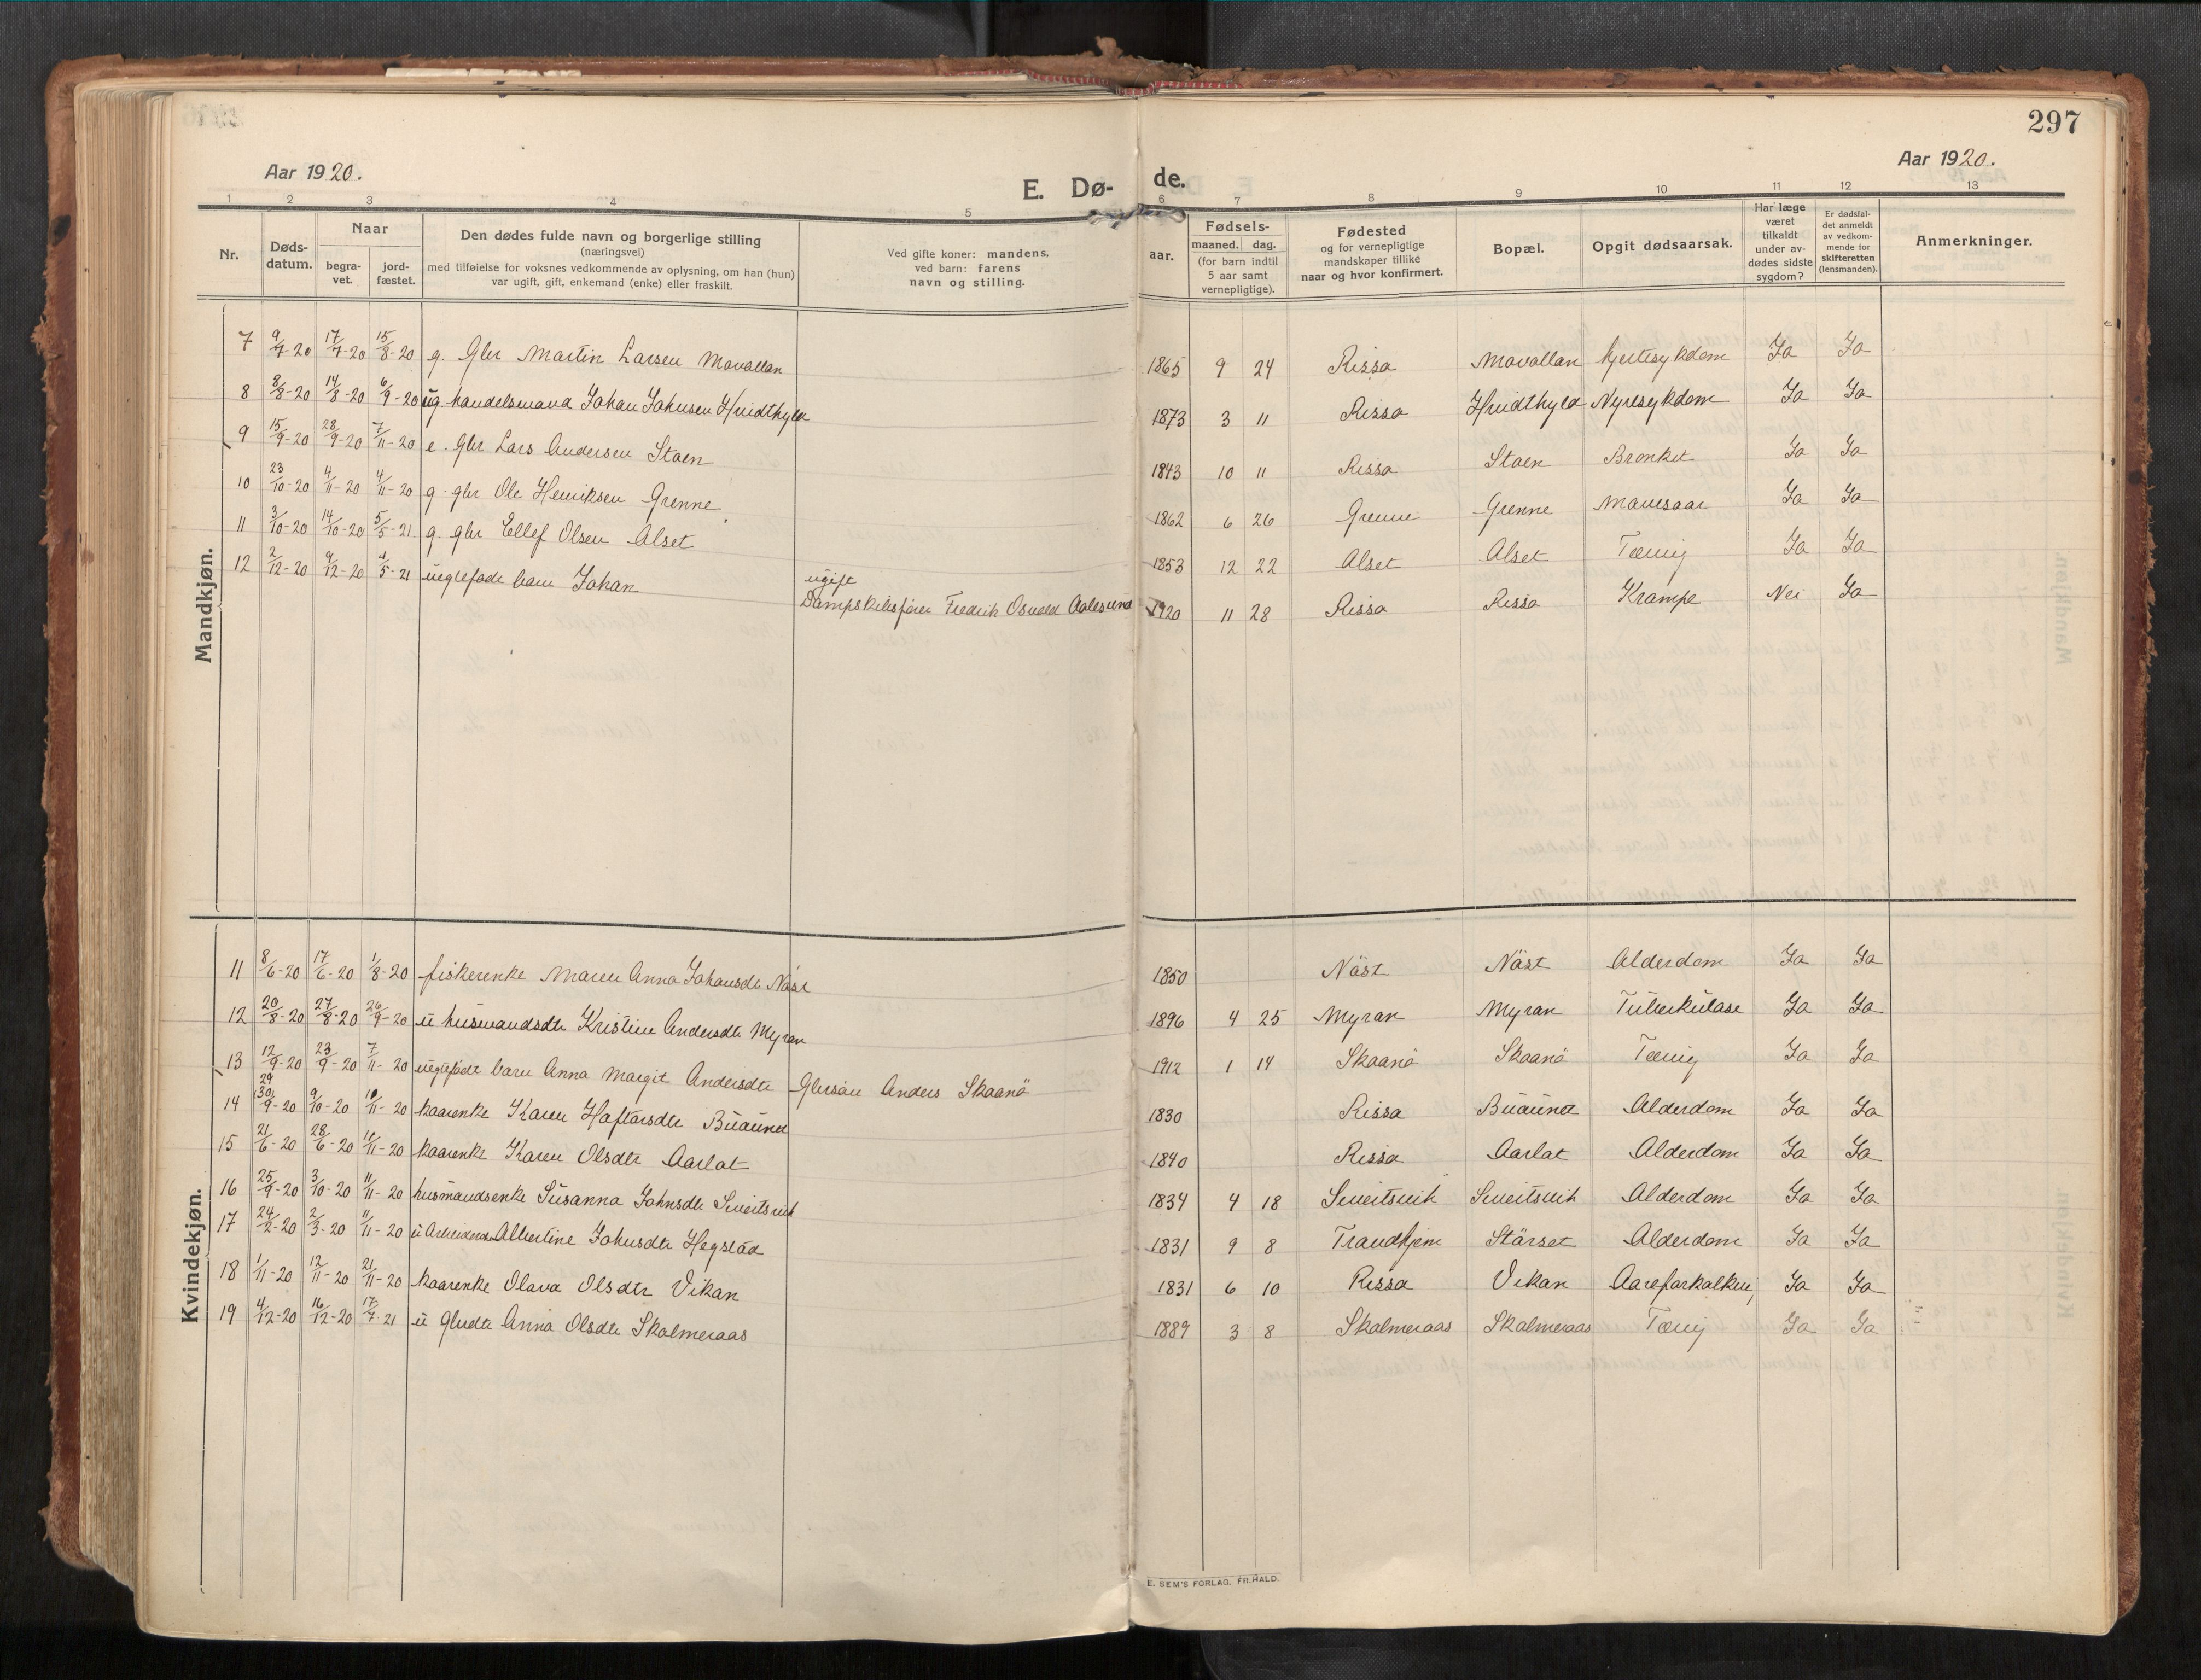 297
Aar 1920. E. Dø- de. Aar 1920.
1 2 3 4 5 6 7 8 9 10 11 12 13
Nr.
Døds-
datum.
Naar
begra-
vet.
jord-
fæstet.
Den dødes fulde navn og borgerlige stilling
(næringsvei)
med tilføielse for voksnes vedkommende av oplysning, om han (hun)
var ugift, gift, enkemand (enke) eller fraskilt.
Ved gifte koner: mandens,
ved barn: farens
navn og stilling.
Fødsels-
aar.
maaned. dag.
(for barn indtil
5 aar samt
vernepligtige).
Fødested
og for vernepligtige
mandskaper tillike
naar og hvor konfirmert.
Bopæl.
Opgit dødsaarsak.
Har læge
været
tilkaldt
under av-
dødes sidste
sygdom?
Er dødsfal-
det anmeldt
av vedkom-
mende for
skifteretten
(lensmanden).
Anmerkninger.
Mandkjøn.
7 9/7-20 17/7-20 15/8-20 g. Gbr Martin Larsen Movollan 1865 9 24 Rissa Movollan hjertesykdom Ja Ja
8 8/8-20 14/8-20 6/9-20 ug. handelsmand Johan Johnsen Hvidthyld 1873 3 11 Rissa Hvidthyld Nyresykdom Ja Ja
9 15/9-20 28/9-20 7/11-20 e. Gbr Lars Andersen Staen 1843 10 11 Rissa Staen Bronkit Ja Ja
10 23/10-20 4/11-20 4/11-20 g. gbr Ole Henriksen Grenne 1862 6 26 Grenne Grenne Mavesaar Ja Ja
11 3/10-20 14/10-20 5/5-21 g. gbr Ellef Olsen Alset 1853 12 22 Alset Alset Tæring Ja Ja
12 2/12-20 9/12-20 /5-21 uegtefødt barn Johan ugift
Dampskibsfører Fredrik Osvald Aalesund 1920 11 28 Rissa Rissa Krampe Nei Ja
Kvindekjøn.
11 8/6-20 17/6-20 1/8-20 fiskerenke Maren Anna Johansdt Näst 1850 Näst Näst Alderdom Ja Ja
12 20/8-20 27/8-20 26/9-20 u husmandsdtr Kristine Andersdtr Myran 1896 4 25 Myran Myran Tuberkulose Ja Ja
13 12/9-20 23/9-20 7/11-20 uegtefødt barn Anna Margit Andersdtr Gbrsøn Anders Skaanö 1912 1 14 Skaanö Skaanö Tæring Ja Ja
14 29 (30)/9-20 9/10-20 /11-20 kaarenke Karen Haftorsdtr Buaunet 1830 Rissa Buaunet Alderdom Ja Ja
15 21/6-20 28/6-20 /11-20 kaarenke Karen Olsdtr Aarlot 1840 Rissa Aarlot Alderdom Ja Ja
16 25/9-20 3/10-20 11/11-20 husmandsenke Susanna Johnsdtr Sneitsvik 1834 4 18 Sneitsvik Sneitsvik Alderdom Ja Ja
17 24/2-20 2/3-20 11/11-20 u Albertine Johnsdtr Hegstad 1831 9 8 Trondhjem Stärset Alderdom Ja Ja
18 1/11-20 12/11-20 21/11-20 kaarenke Olava Olsdtr Vikan 1831 6 10 Rissa Vikan Aareforkalkn, Ja Ja
19 4/12-20 16/12-20 17/7-21 u Gbrdtr Anna Olsdtr Skolmeraas 1889 3 8 Skolmeraas Skolmeraas Tæring Ja Ja
E. SEM'S FORLAG, FR.HALD.